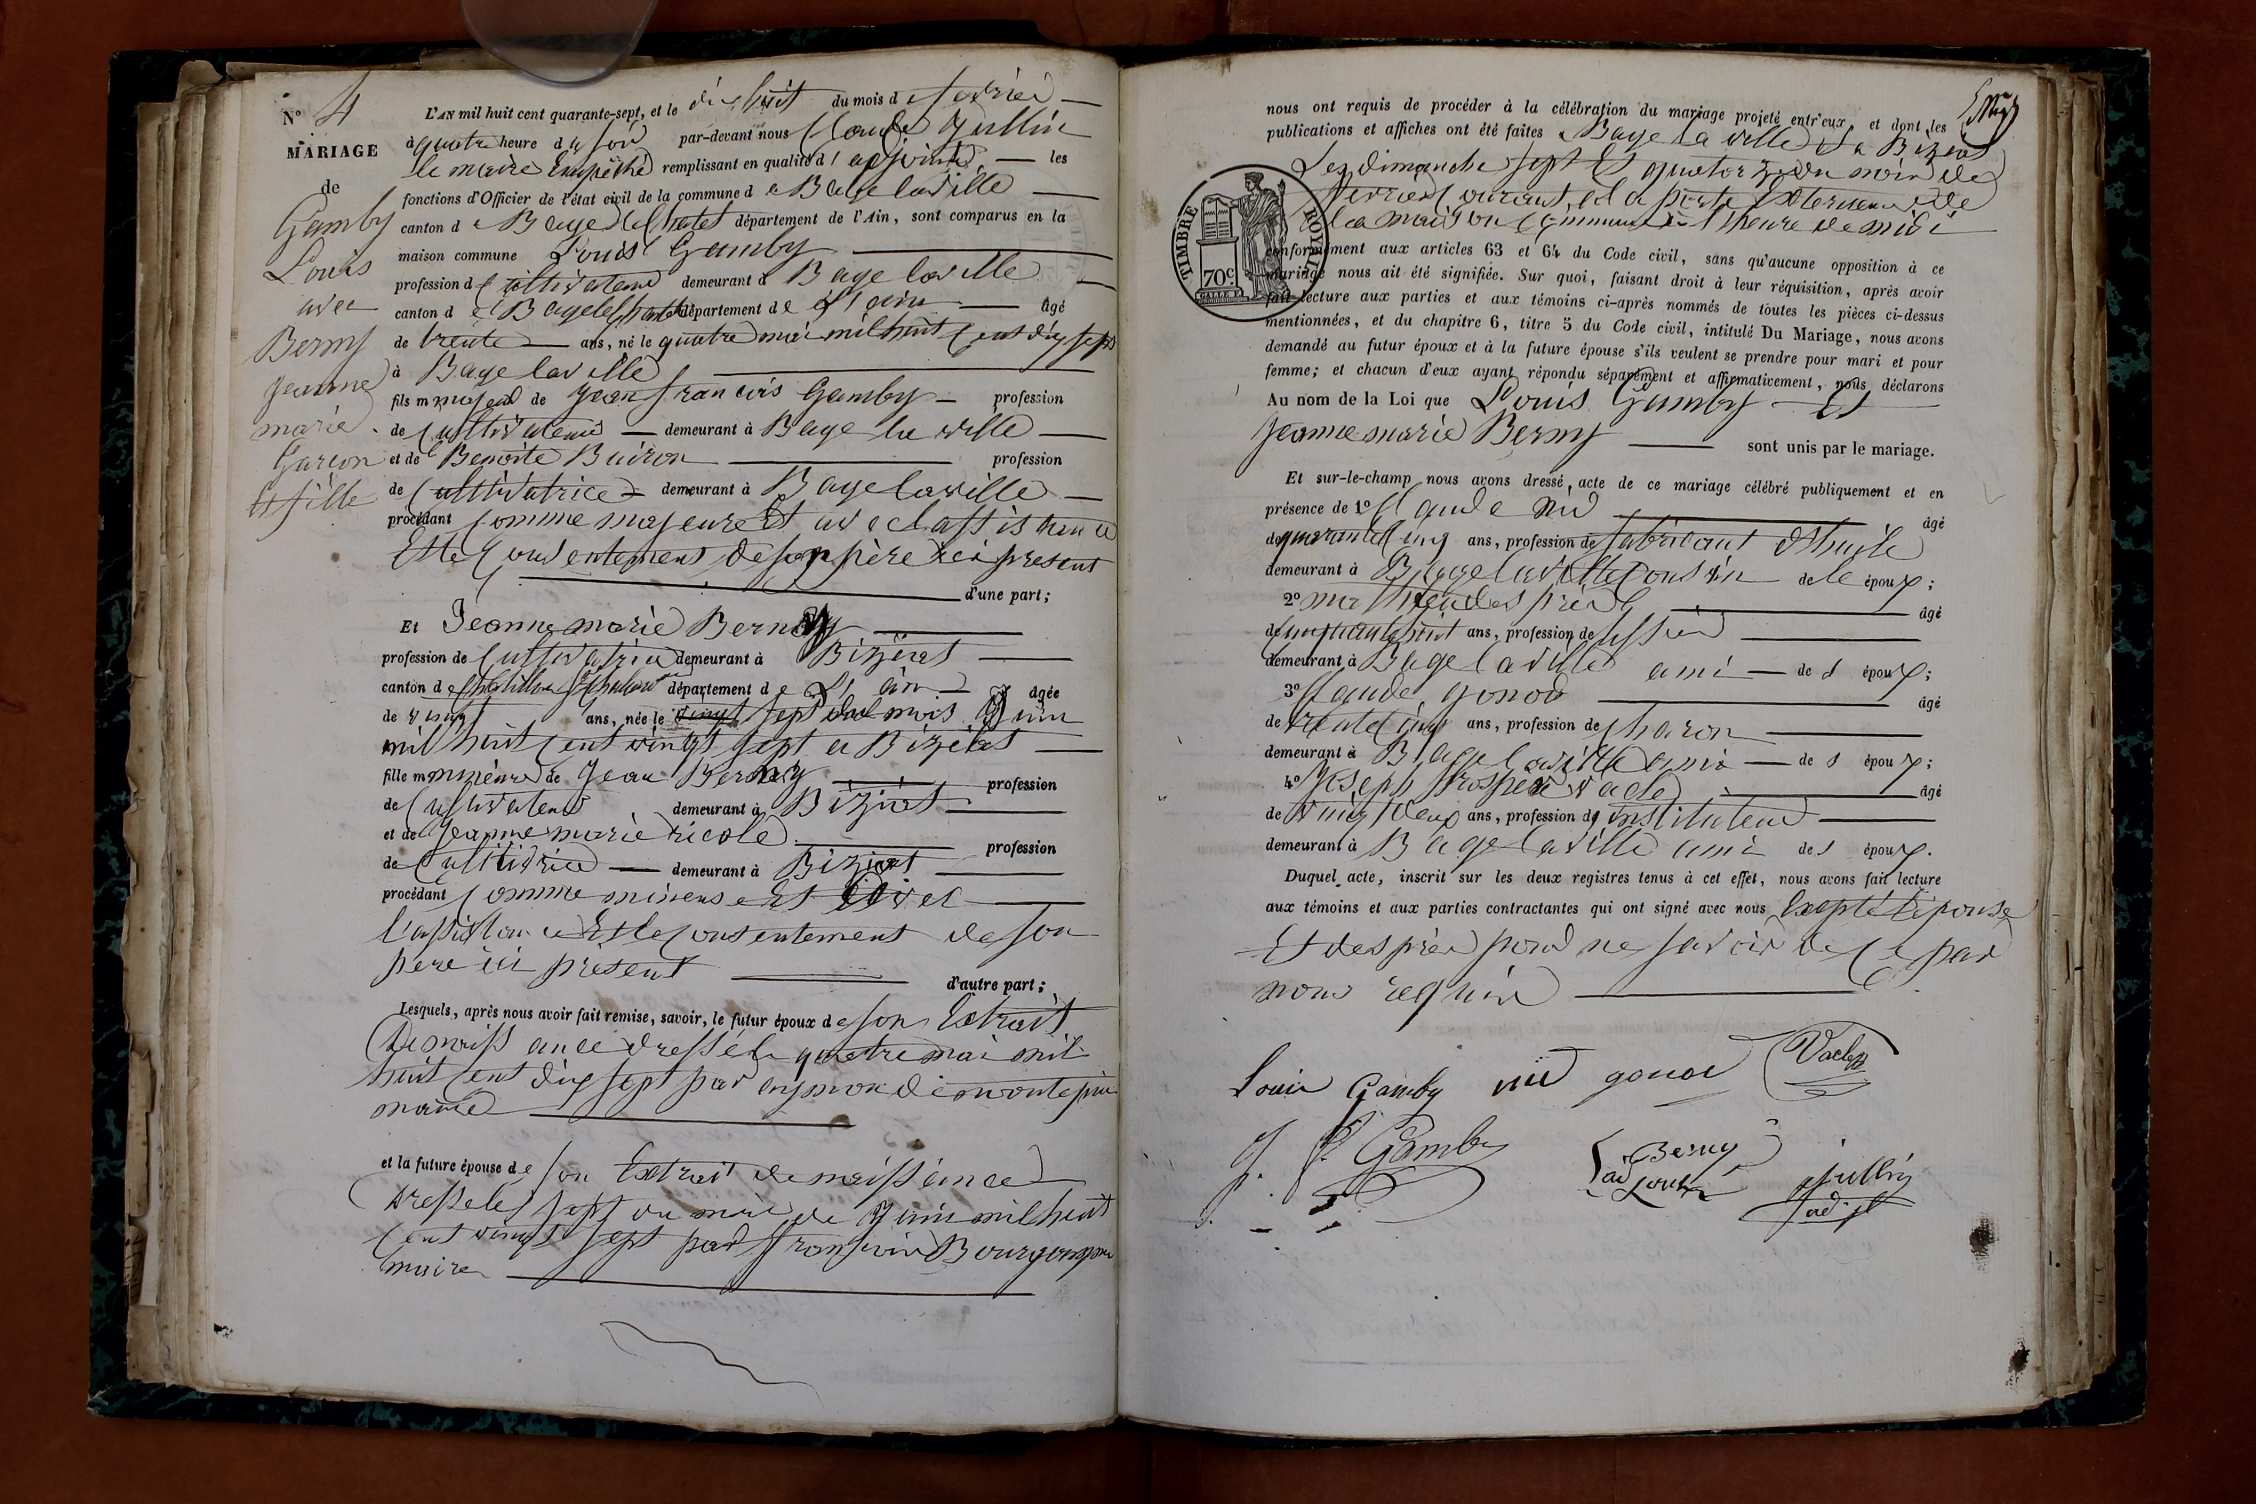 N° 4
MARIAGE
de
Gamby
Louis
avec
Berny
jeanne
marie
Garcon
et fille
L'AN mil huit cent quarante-sept, et le dix huit du mois de fevrier
à quatre heure du soir par-devant nous Claude Jullin
le maire Empêché remplissant en qualité d'adjoint les
fonctions d'Officier de l'état civil de la commune de Bage laville
canton de Bage le chatel département de l'Ain, sont comparus en la
maison commune Louis Gamby
profession de Cultivateur demeurant à Bage laville
canton de Bage le chatel département de L'ain âgé
de trente ans, né le quatre mai mil huit Cent dix sept
à Bage laville
fils majeur de jean francois Gamby profession
de Cultivateur demeurant à Bage la ville
et de Benoite Buiron profession
de Cultivatrice demeurant à Bage laville
procédant Comme majeure Et avec lassistance
Et le Consentement de son père ici present
d'une part;
Et Jeanne marie Berny
profession de Cultivatrice demeurant à Biziat
canton de Chatillon département de L'ain âgée
de vingt ans, née le sept du mois juin
mil huit Cent vingt sept a Biziat
fille mineure de Jean Berny profession
de Cultivateur demeurant à Biziat
et de Jeanne marie ricole profession
de demeurant à Biziat
procédant Comme mineure Et avec
l'assistance Et le Consentement de son
pere ici présent
d'autre part;
Lesquels, après nous avoir fait remise, savoir, le futur époux de son Extrait
De naissance dressé le quatre mai mil
huit Cent dix sept par
maire
et la future épouse de son Extrait de naissance
Dressé le sept du mois de Juin mil huit
Cent vingt sept par francois
maire
nous ont requis de procéder à la célébration du mariage projeté entr'eux et dont les
publications et affiches ont été faites a Bage la ville Et a Biziat
Les dimanche sept Et quatorze du mois de
fevrier Courant, et a porte Exterieure de
la maison Commune a l'heure de midi
conformément aux articles 63 et 64 du Code civil, sans qu'aucune opposition à ce
mariage nous ait été signifiée. Sur quoi, faisant droit à leur réquisition, après avoir
fait lecture aux parties et aux témoins ci-après nommés de toutes les pièces ci-dessus
mentionnées, et du chapitre 6, titre 5 du Code civil, intitulé Du Mariage, nous avons
demandé au futur époux et à la future épouse s'ils veulent se prendre pour mari et pour
femme; et chacun d'eux ayant répondu séparément et affirmativement, nous déclarons
Au nom de la Loi que Louis Gamby Et
Jeanne marie Berny sont unis par le mariage.
TIMBRE ROYAL
70c.
Et sur-le-champ nous avons dressé acte de ce mariage célébré publiquement et en
présence de 1° Claude nid âgé
de quarante Cinq ans, profession de fabricant d'huile
demeurant à Bage laville Cousin de le époux;
2° âgé
de ans, profession de
demeurant à Bage la ville ami de l époux;
3° Claude gonod âgé
de trente Cinq ans, profession de charon
demeurant à Bage laville ami de l époux;
4° Joseph prosper vacle âgé
de vingt Deux ans, profession d'instituteur
demeurant à Bage laville ami de l époux.
Duquel acte, inscrit sur les deux registres tenus à cet effet, nous avons fait lecture
aux témoins et aux parties contractantes qui ont signé avec nous Excepté L'épouse
Et pour ne savoir de Ce par
nous requis
Louis Gamby nid gonod Vacle
J. f. Gamby Berny
adjoint Jullin
adjt